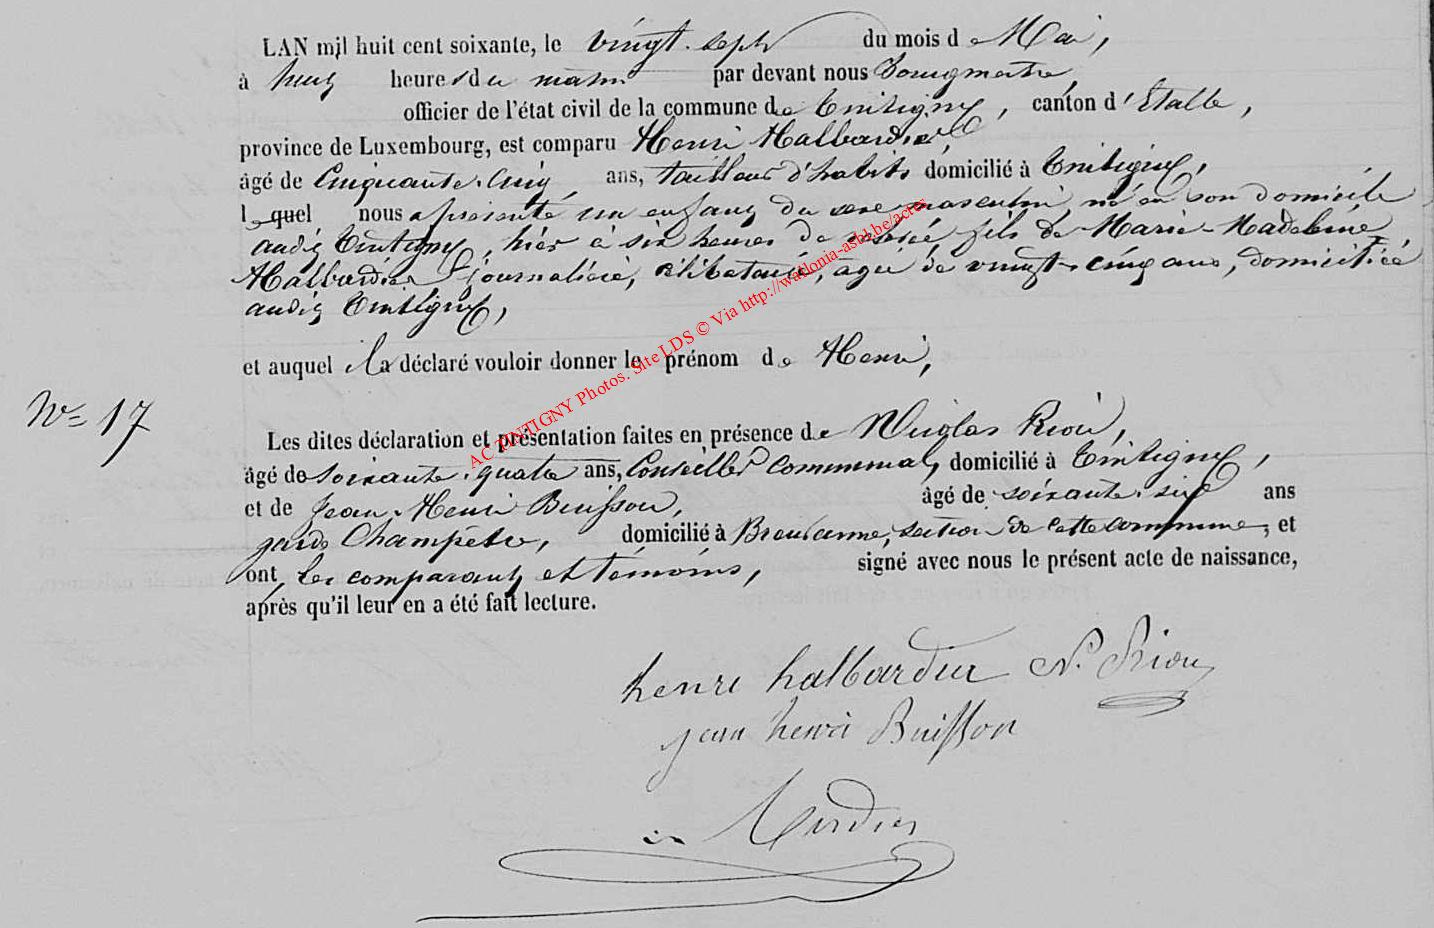 LAN mil huit cent soixante, le vingt-sept du mois de Mai,
à huit heures du matin par devant nous Bourgmestre,
officier de l'état civil de la commune de Tintigny, canton d'Etalle,
province de Luxembourg, est comparu Henri Halbardier,
âgé de Cinquante-cinq ans, tailleur d'habits domicilié à Tintigny,
lequel nous a présenté un enfant du sexe masculin, né en son domicile
audit Tintigny, hier à six heures de relevée, fils de Marie-Madeleine
Halbardier journalière, célibataire, âgée de vingt-cinq ans, domiciliée
audit Tintigny,
et auquel il a déclaré vouloir donner le prénom de Henri,
N= 17
Les dites déclaration et présentation faites en présence de Nicolas Riou,
âgé de soixante-quatre ans, Conseiller communal, domicilié à Tintigny,
et de Jean-Henri Buisson, âgé de soixante-six ans
garde Champêtre, domicilié à Breuvanne, section de cette commune, et
ont les comparant et témoins, signé avec nous le présent acte de naissance,
après qu'il leur en a été fait lecture.
henri halbardier N. Riou
jean henri Buisson
AC TINTIGNY Photos. Site LDS © Via http://wallonia-asbl.be/actes